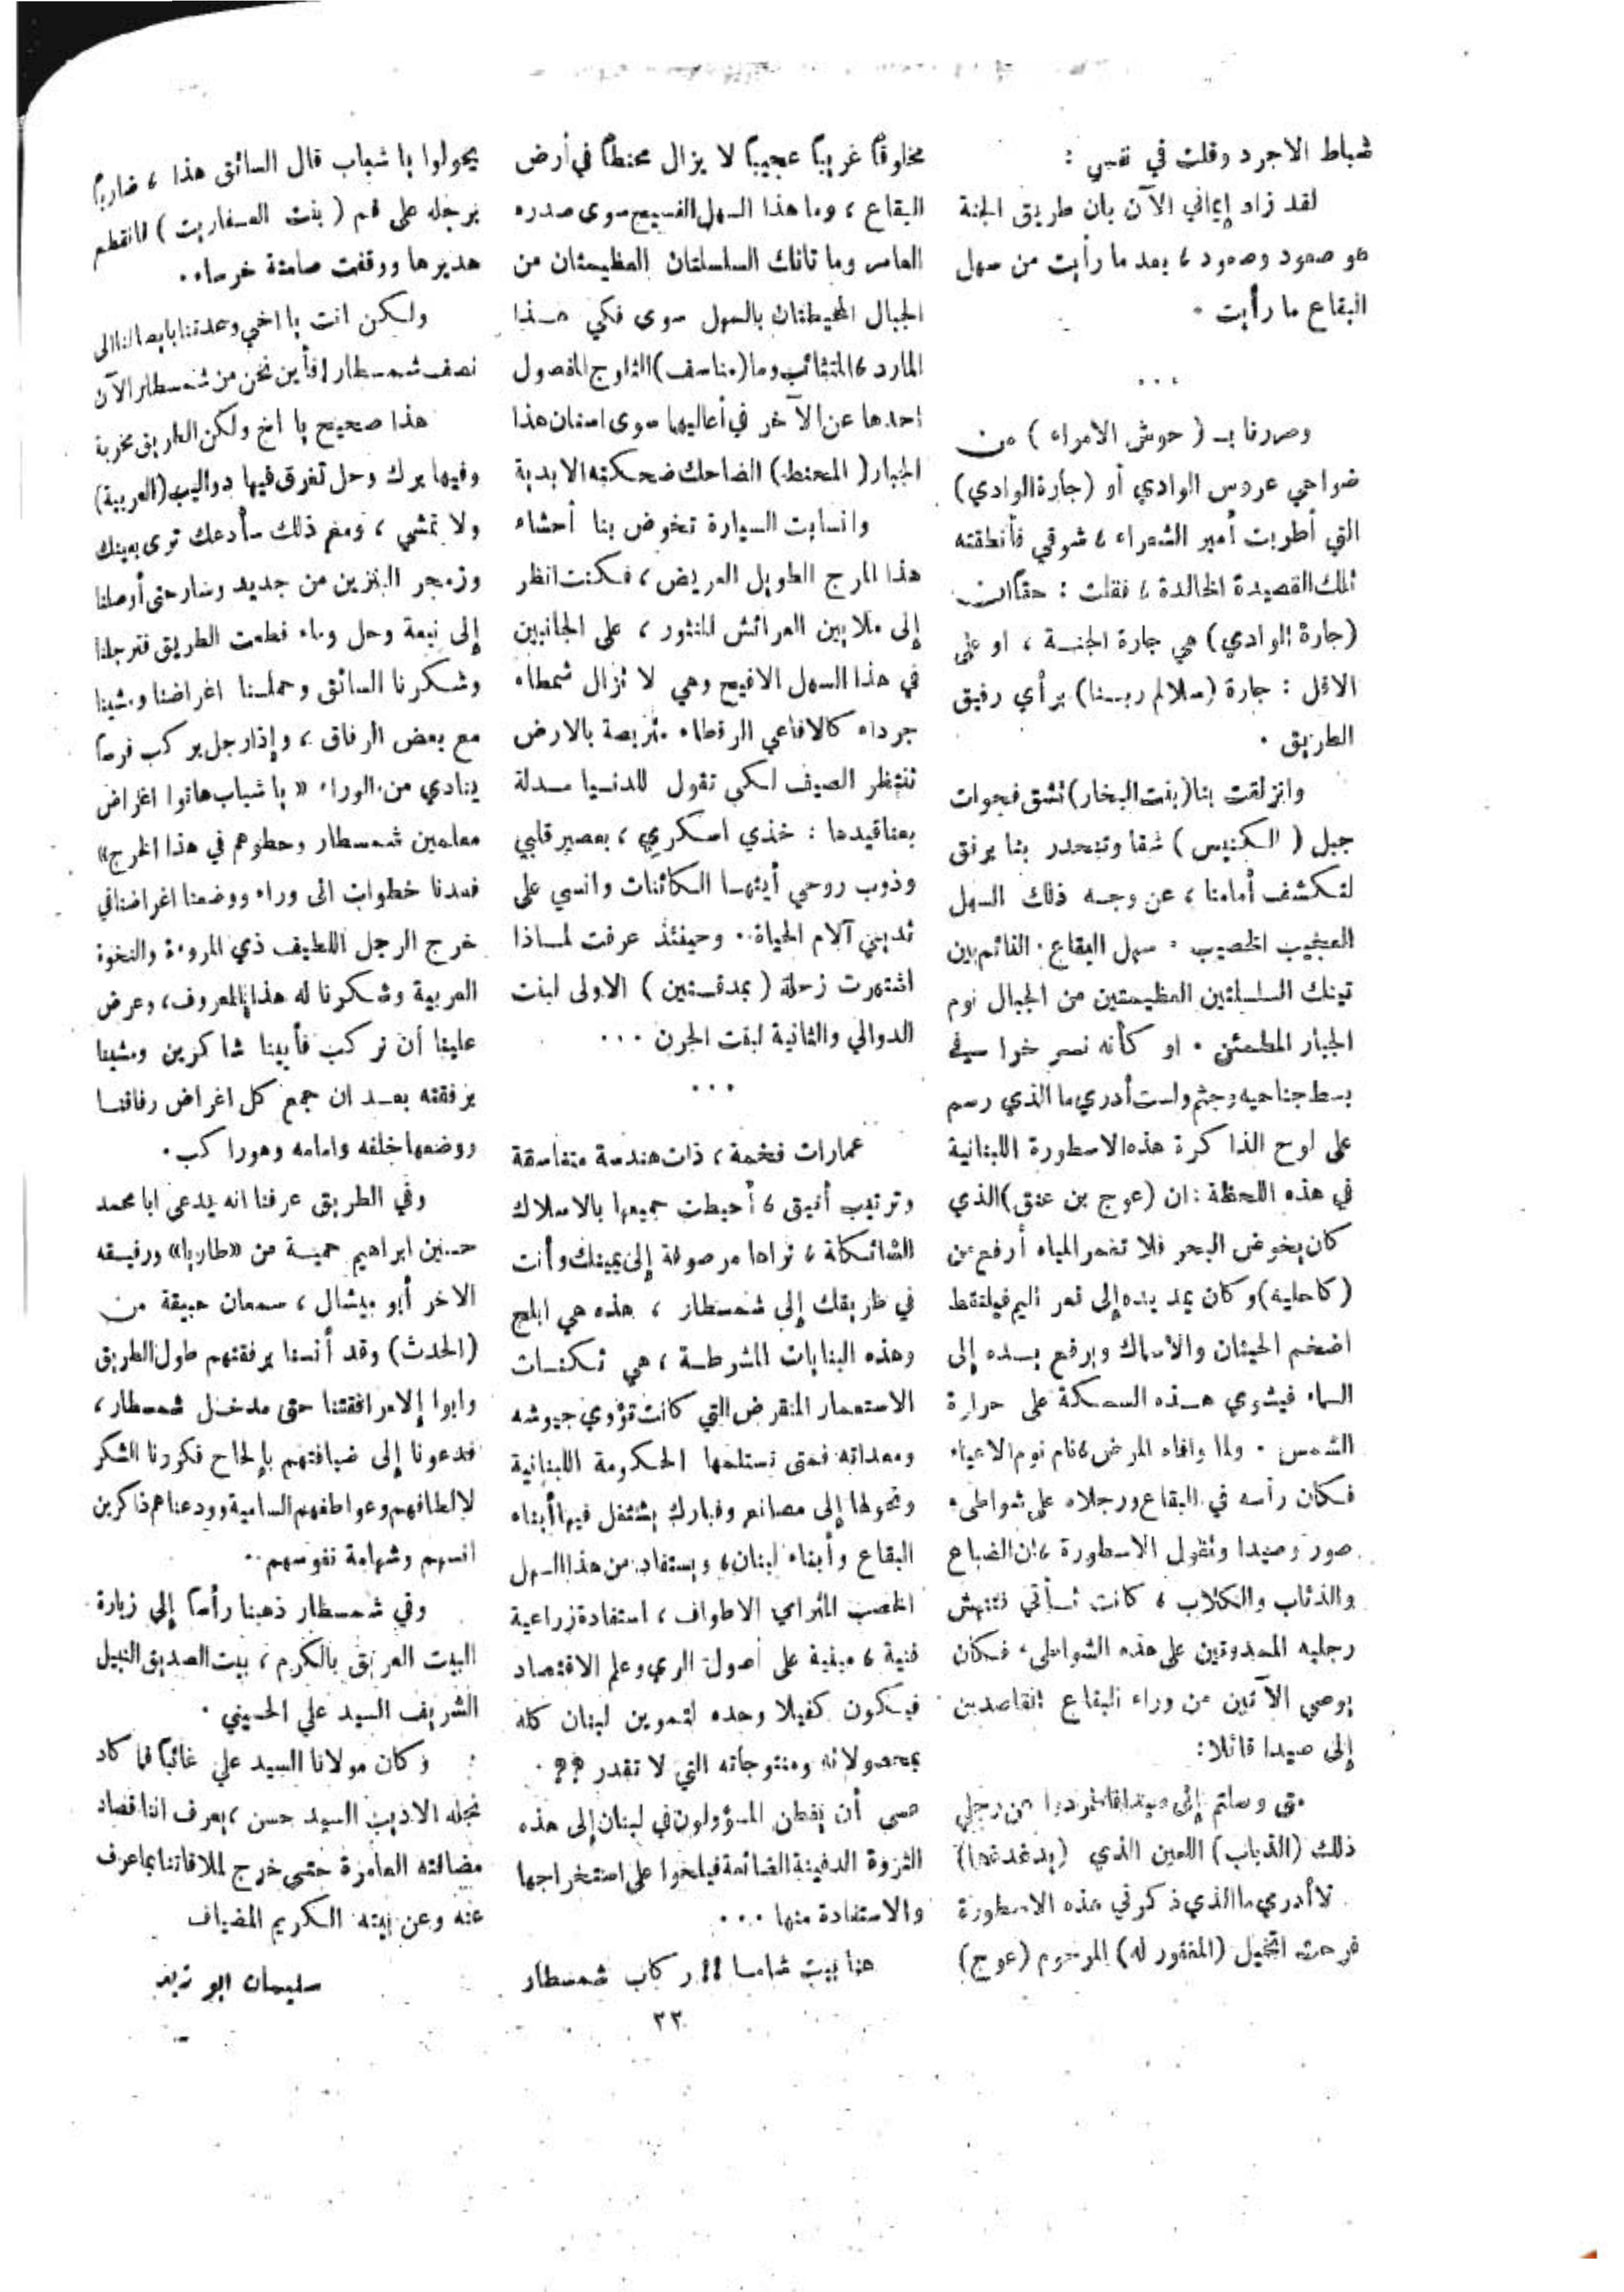 شباط الاجرد وقلت في نفسي :
لقد زاد إيماني الآن بان طريق الجنة
هو صعود وصعود ، بعد ما رأيت من سهل
البقاع ما رأيت .
...
ومررنا بـ ( حوش الامراء ) من
ضواحي عروس الوادي أو (جارة الوادي)
التي أطربت أمير الشعراء ، شوقي فأنطقته
تلك القصيدة الخالدة ، فقلت : حقاً ان
(جارة الوادي) هي جارة الجنـة ، او على
الاقل : جارة (سلالم ربـنا) برأي رفيق
الطريق .
وانزلقت بنا (بنت البخار) تشق فجوات
جبل ( الكنيس ) شقا وتنحدر بنا برفق
لتكشف أمامنا ، عن وجه ذلك السهل
العجيب الخصيب . سهل البقاع . القائم بين
تينك السلسلتين العظيمتين من الجبال نوم
الجبار المطمئن . او كأنه نسر خرا في
بسط جناحيه وجثم ولست أدري ما الذي رسم
على لوح الذاكرة هذه الاسطورة اللبنانية
في هذه اللحظة : ان (عوج بن عنق) الذي
كان يخوض البحر فلا تغمر المياه أرفع من
(كاحليه) وكان يمد يده إلى قعر اليم فيلتقط
اضخم الحيتان والاسماك ويرفع يـده إلى
السماء فيشوي هـذه السمكة على حرارة
الشمس . ولما وافاه المرض ، نام نوم الاعياء
فكان رأسه في البقاع ورجلاه على شواطىء
صور وصيدا وتقول الاسطورة ، ان الضباع
والذئاب والكلاب ، كانت تـأتي فتنهش
رجليه الممدودتين على هذه الشواطىء فكان
يوصي الآتين من وراء البقاع القاصدين
إلى صيدا قائلا :
متى وصلتم إلى صيدا فاطردوا عن رجلي
ذلك (الذباب) اللعين الذي (يدغدغها)
لا أدري ما الذي ذكرني هذه الاسطورة
فرحت اتخيل (المغفور له) المرحوم (عوج)
مخلوقاً غريباً عجيباً لا يزال محنطاً في أرض
البقاع ، وما هذا السهل الفسيح سوى صدره
العامر وما تانك السلسلتان العظيمتان من
الجبال المحيطتان بالسهل سوى فكي هـذا
المارد ، المتثائب وما (مناسف) الثلوج المفصول
احدها عن الآخر في أعاليها سوى اسنان هذا
الجبار ( المحنط ) الضاحك ضحكته الابدية
وانسابت السيارة تخوض بنا أحشاء
هذا المرج الطويل العريض ، فكنت انظر
إلى ملايين العرائش المنثور ، على الجانبين
في هذا السهل الافيح وهي لا تزال شمطاء
جرداء كالافاعي الرقطاء متربصة بالارض
تنتظر الصيف لكي تقول للدنـيا مـدلة
بعناقيدها : خذي اسكري ، بعصير قلبي
وذوب روحي أيتهـا الكائنات وانسي على
ثديي آلام الحياة .. وحينئذ عرفت لماذا
اشتهرت زحلة ( بمدقتين ) الاولى لبنت
الدوالي والثانية لبنت الجرن ...
...
عمارات فخمة ، ذات هندسة متناسقة
وترتيب أنيق ، أحيطت جميعها بالاسلاك
الشائكة ، تراها مرصوفة إلى يمينك وأنت
في طريقك إلى شمسطار ، هذه هي ابلح
وهذه البنايات المشرطـة ، هي ثكنـات
الاستعمار المنقرض التي كانت تؤوي جيوشه
ومعداته فمتى تستلمها الحكومة اللبنانية
وتحولها إلى مصانع وفبارك يشتغل فيها أبناء
البقاع وأبناء لبنان ، ويستفاد من هذا السهل
الخصب المترامي الاطواف ، استفادة زراعية
فنية ، مبنية على أصول الري وعلم الاقتصاد
فيكون كفيلا وحده لتموين لبنان كله
بمحصولاته ومنتوجاته التي لا تقدر ؟؟ .
عسى أن يفطن المسؤولون في لبنان إلى هذه
الثروة الدفينة الضائعة فيلحوا على استخراجها
والاستفادة منها ...
هنا بيت شاما !! ركاب شمسطار
يحولوا يا شباب قال السائق هذا ، ضارباً
برجله على فم ( بنت العفاريت ) فانقطع
هديرها ووقفت صامتة خرساء ..
ولكن انت يا اخي وعدتنا بايصالنا الى
نصف شمسطار ! فأين نحن من شمسطار الآن
هذا صحيح يا اخ ولكن الطريق مخربة
وفيها برك وحل تغرق فيها دواليب (العربية)
ولا تمشي ، ومع ذلك سأدعك ترى بعينك
وزمجر البنزين من جديد وسار حتى أوصلنا
إلى نبعة وحل وماء قطعت الطريق فترجلنا
وشكرنا السائق وحملنا اغراضنا ومشينا
مع بعض الرفاق ، وإذا رجل يركب فرساً
ينادي من الوراء « يا شباب هاتوا اغراض
معلمين شمسطار وحطوهم في هذا الخرج »
فعدنا خطوات الى وراء ووضعنا اغراضنا في
خرج الرجل اللطيف ذي المروءة والنخوة
العربية وشكرنا له هذا المعروف ، وعرض
علينا أن نركب فأبينا شاكرين ومشينا
برفقته بعـد ان جمع كل اغراض رفاقنـا
ووضعها خلفه وامامه وهو راكب .
وفي الطريق عرفنا انه يدعى ابا محمد
حسنين ابراهيم حمية من «طاريا» ورفيقه
الاخر أبو ميشال ، سمعان حبيقة من
(الحدث) وقد أنسنا برفقتهم طول الطريق
وابوا إلا مرافقتنا حتى مدخل شمسطار ،
فدعونا إلى ضيافتهم بإلحاح فكررنا الشكر
لالطافهم وعواطفهم السامية وودعناهم ذاكرين
انسهم وشهامة نفوسهم ..
وفي شمسطار ذهبنا رأساً إلى زيارة
البيت العريق بالكرم ، بيت الصديق النبيل
الشريف السيد علي الحسيني .
وكان مولانا السيد علي غائباً فما كاد
نجله الاديب السيد حسن ، يعرف اننا قصاد
مضافته العامرة حتى خرج لملاقاتنا بما عرف
عنه وعن بيته الكريم المضياف
سليمان ابو زيد
٢٣